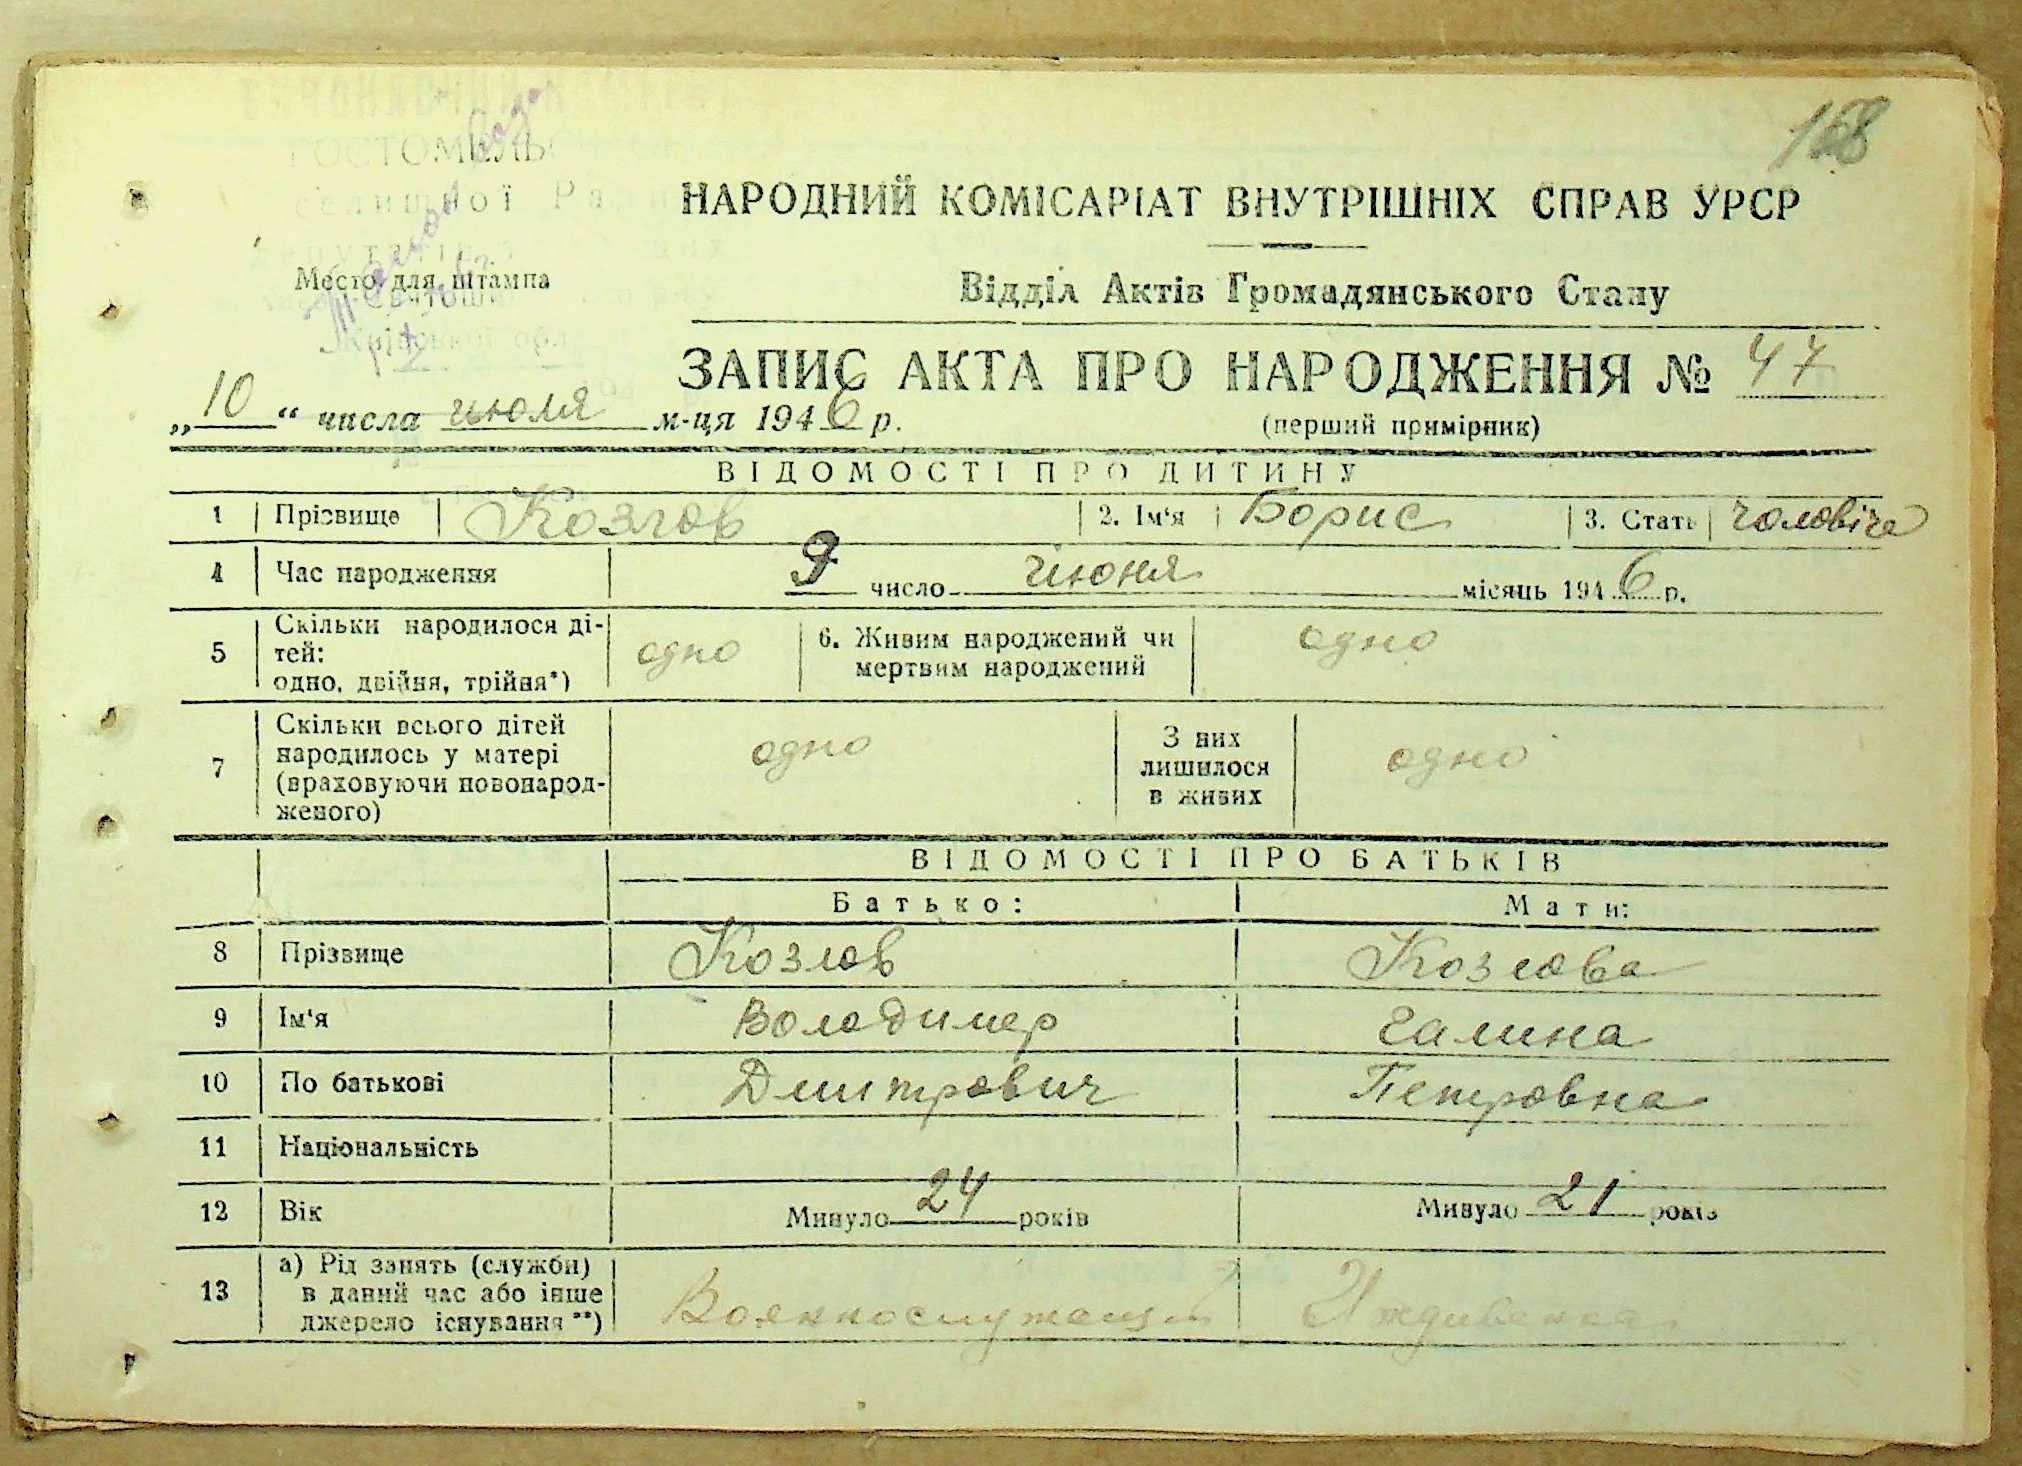 168
ГОСТОМЕЛЬСЬ
селищної Ради
депутатів
Київської обл.
НАРОДНИЙ КОМІСАРІАТ ВНУТРІШНІХ СПРАВ УРСР
Место для штампа
Відділ Актів Громадянського Стану
ЗАПИС АКТА ПРО НАРОДЖЕННЯ № 47
„10“ числа июля м-ця 1946 р.
(перший примірник)
ВІДОМОСТІ ПРО ДИТИНУ
1 Прізвище Козлов 2. Ім‘я Борис 3. Стать чоловіче
4 Час народження 9 число июня місяць 1946 р.
5 Скільки народилося ді-
тей:
одно, двійня, трійня*) одно
6. Живим народжений чи
мертвим народжений одно
7 Скільки всього дітей
народилось у матері
(враховуючи новонарод-
женого) одно
З них
лишилося
в живих одно
ВІДОМОСТІ ПРО БАТЬКІВ
Батько: Мати:
8 Прізвище Козлов Козлова
9 Ім‘я Володимер Галина
10 По батькові Дмитрович Петровна
11 Національність
12 Вік Минуло 24 років Минуло 21 років
13 а) Рід занять (служби)
в даний час або інше
джерело існування **) Военнослужащий Иждивенка